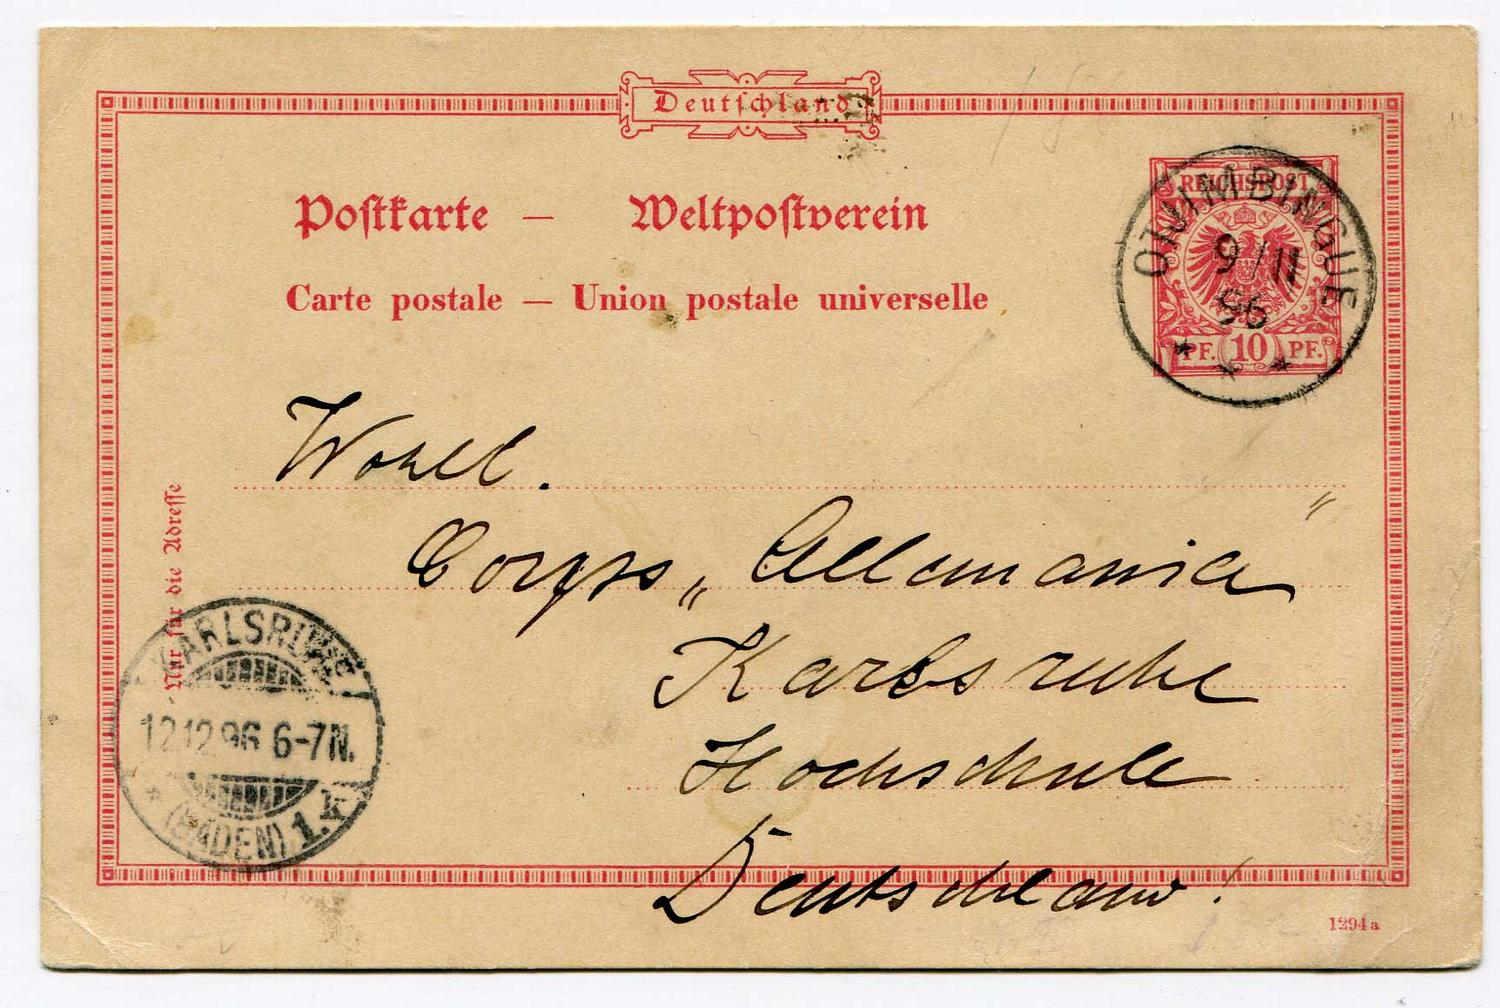 Deutschland
Postkarte — Weltpostverein
Carte postale — Union postale universelle
REICHSPOST
PF. 10 PF.
OTJIMBINGUE
9/11
96
Wohll.
Corps „Allemania"
Karlsruhe
Hochschule
Deutschland!
Nur für die Adresse
KARLSRUHE
12.12.96 6-7N.
(BADEN) 1.k
1294a